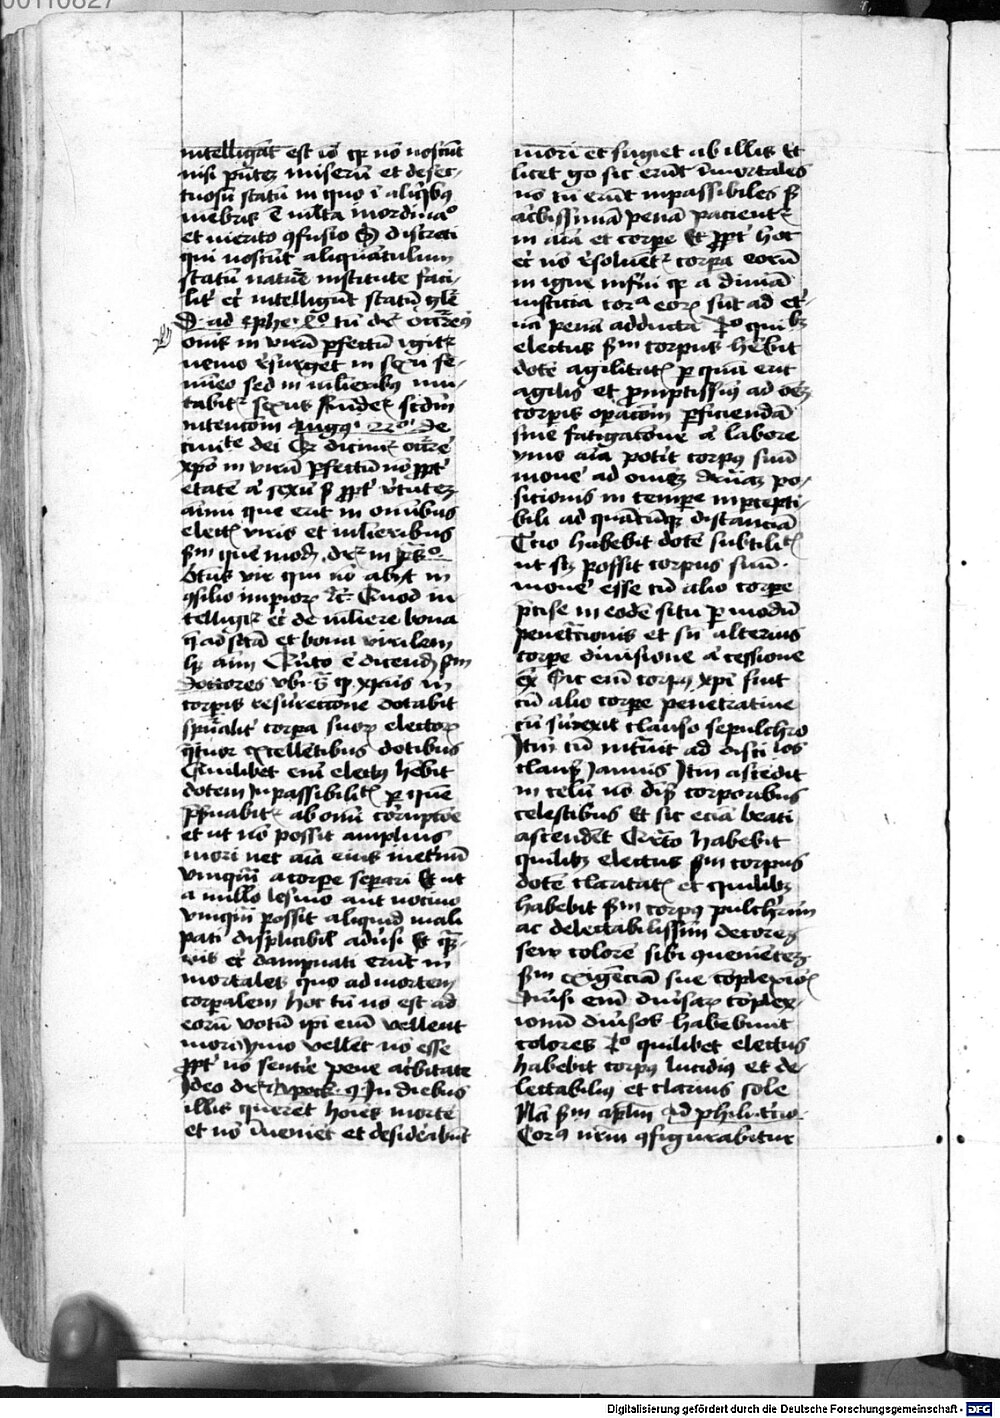 00110827
intelligāt est iō qꝛ nō noscūt
nisi pn̄tez miseriā et defec-
tuosū statū in quo ī aliqͥbꝰ
mēbris ē ml̄ta inordinaº
et merito ꝯfusio Sꝫ discreti
qui noscūt aliquātulum
statū nature institute faci-
litˀ et̄ intelligūt statū
D ad ephe 4º tū dꝛ occreꝰ
oīns in virū ꝑfectū igitꝛ
nemo resurget in sexu fe-
mīeo sed in mlieribꝯ mu-
tabitꝛ sexus scd̄m
intencōm Augꝯ 22º de
ciuite dei Qꝛ dicimꝛ occrē
xp̄o in virū ꝑfectū nō ꝓpt̄
etatē aˡ sexū sꝫ ꝓpt̄ v̄tutez
animi que erit in omībus
elect viris et mlieribus
sm̄ que mod dꝛ in pˢº
Btūs vir qui nō abyt in
ꝯsilio impioꝝ ⁊c̄ Quod in-
telligiꝛ eť de mliere bona
q̄ ad sctā et bona virilem
hꝫ aīm Quīto ē dicend sm̄
doctores vbi sꝰ qꝛ xp̄us in
corpis resurectione dotabit
spūalitˀ corpa suoꝝ electoꝝ
qͣtuor excellētibus dotibus
Quilibet enī electꝰ hēbit
dotem Inpassibilit ꝑ quē
p̄sͬuabitꝛ ab omī corrupcōe
et ut nō possit amplius
mori nec aīa eius inet̄nū
vnqm̄ a corpe separi Et ut
a nullo lesiuo aut nociuo
vnqm̄ possit aliquid mali
pati displicibil adūsi Et qͣꝫ-
uis eť dampnati erūt in
mortales quo ad mortem
corpalem hoc tn̄ nō est ad
eorū votū ip̄i enī vellent
mori ymo vellēt nō esse
ꝓpt̄ nō sentire pene acbitatē
Ideo dꝛ Apock 9 In diebus
illis querēt hoīes mortē
et nō īueniēt et desiderabūt
mori et fugiet ab illis Et
licet go sic erūt īmortales
nō tn̄ erūt inpassibiles sꝫ
acbissimā penā pacientꝛ
in aīa et corpe Et ꝓpt̄ hoc
eť nō resoluētꝛ corpa eorū
in igne infīni qꝛ a diuīa
iusticia corꝑa eoꝝ sūt ad et̄-
nā penā adducta 2º quilibꝫ
electus sm̄ corpus hēbit
dotē agilitat ꝑ quā erit
agilis et ꝓmptissimꝰ ad oēꝫ
corpis opacōm ꝑficiendā
sine fatigacōne aˡ labore
ymo aīa potit corpꝰ suū
moue ad omēꝫ po-
sitionis in tempe inpcepti-
bili ad quātūqꝫ distanciā
Tcio habebit dotē subtilit
ut sꝫ possit corpus suū
moue esse cū alio corpe
pcise in eodē situ ꝑ modū
penetracionis et sn̄ alterius
corpe diuisione aˡ cessione
ex Sic enī corpꝰ xp̄i fuit
cū alio corpe penetratiue
cū surexit clauso sepulchro
Itm cū intrauit ad discilos
clausꝫ Januis Itm ascēdit
in celū nō diꝫ corporibus
celestibus Et sic eciā beati
ascendēt Q̄rto habebit
quilibꝫ electus sm̄ corpus
dotē claritat et quilibꝫ
habebit sm̄ corpꝰ pulchrum
ac delectabilissim decorez
seu colorē sibi ꝯueniētez
sm̄ exigēciā sue cōplexiōꝝ
Diūsi enī diūsaꝝ cōplex-
ionū diūsos habebunt
colores 2º quilibet electus
habebit corpꝰ lucidiꝰ et de-
lectabiliꝰ et clarius sole
Nā sm̄ aplm̄ Ad philip tcio
Corꝰ nr̄m ꝯfigurabitur
Digitalisierung gefördert durch die Deutsche Forschungsgemeinschaft - DFG